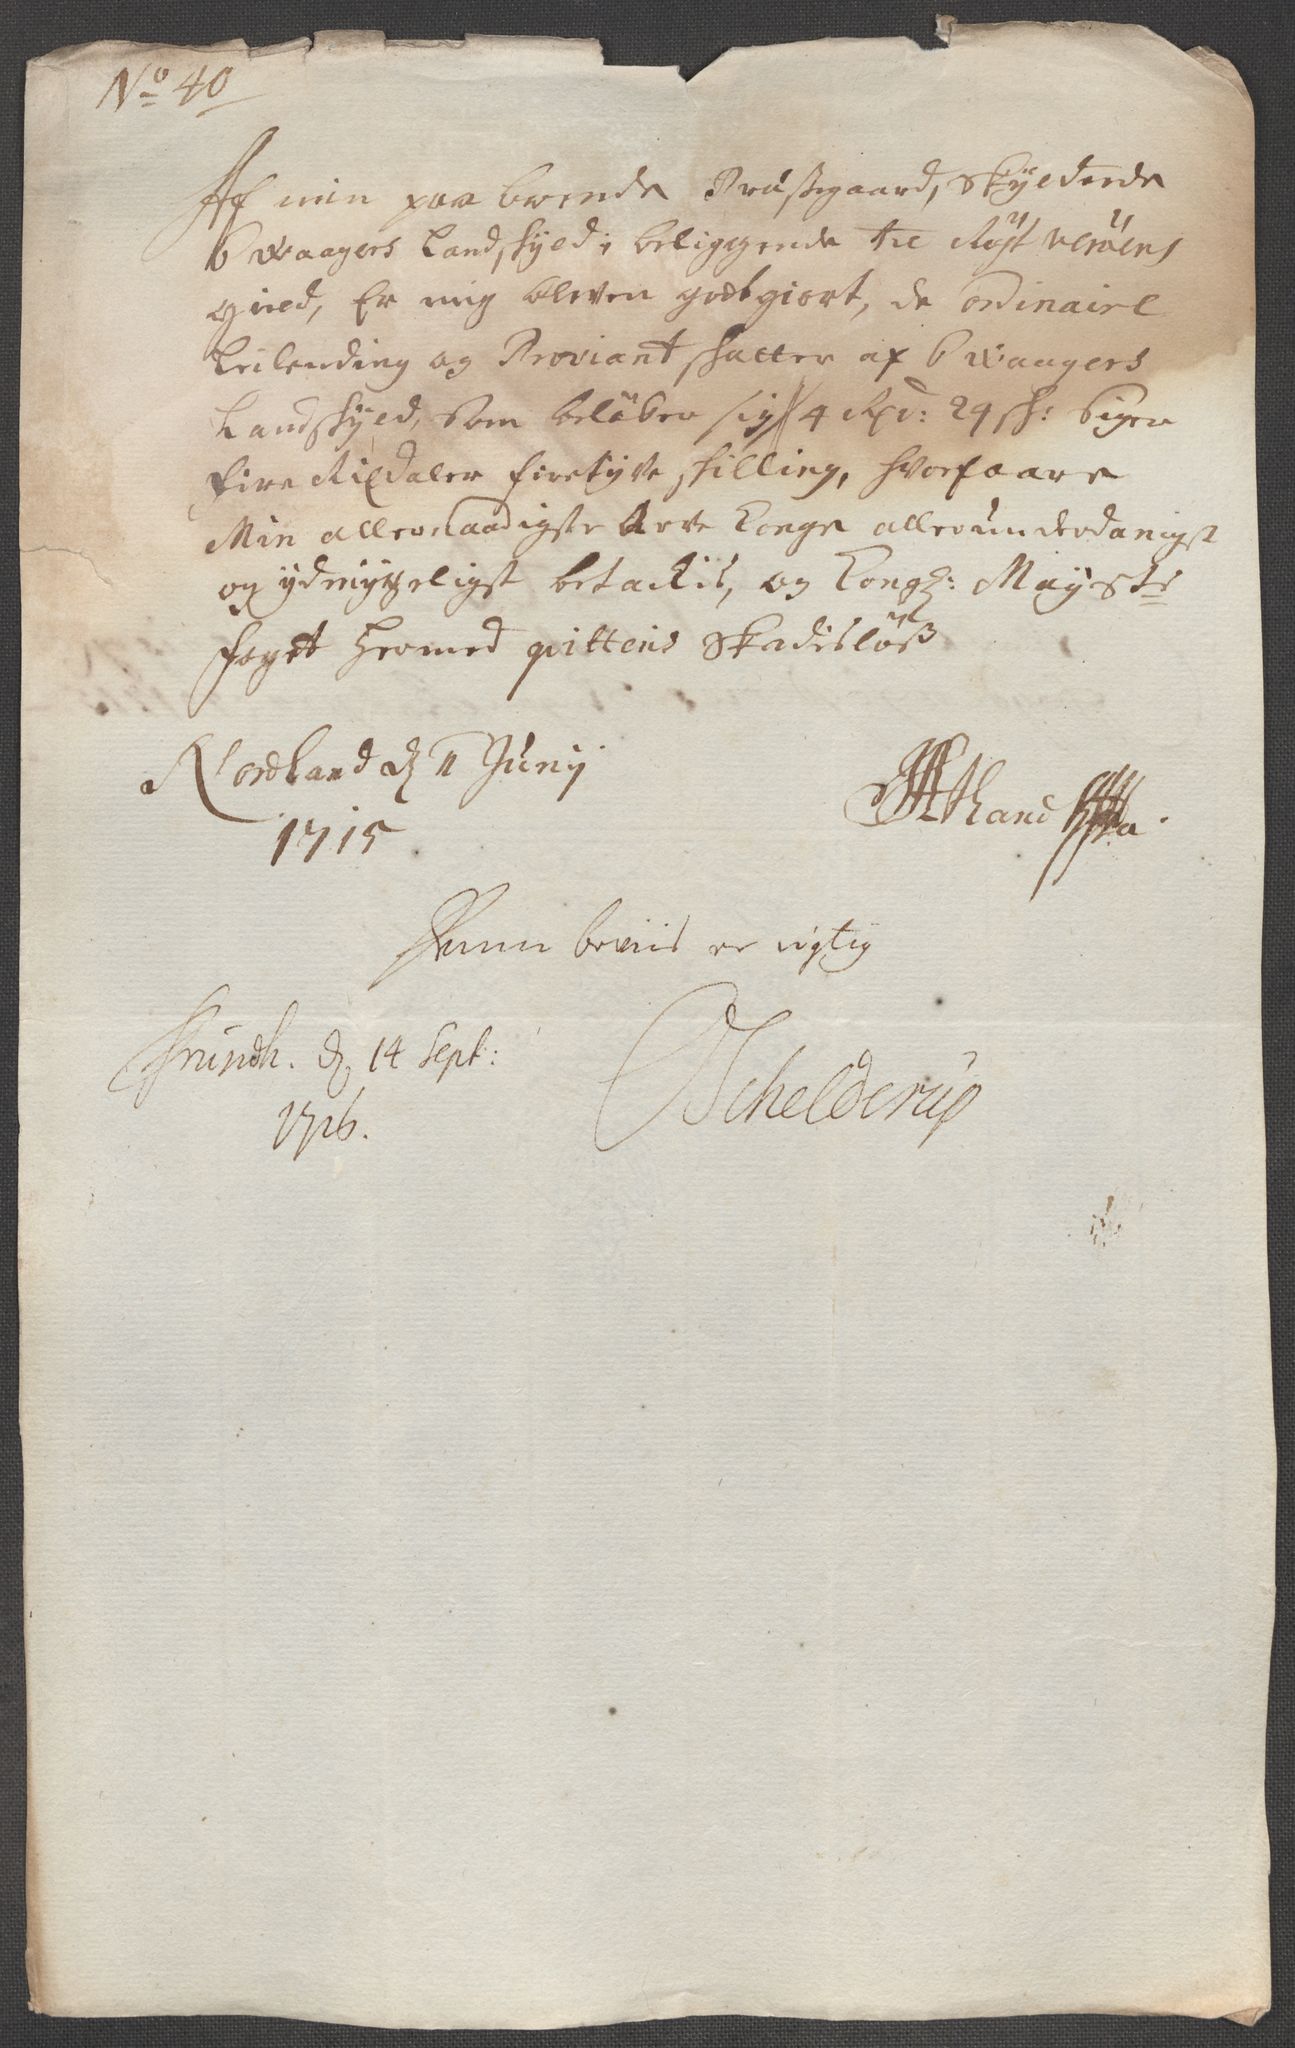 No 40
Af min paa boende Præstegaard, Skyldende
6 Waagers Landskyld, beliggende til Röst Veröens
gield, Er mig bleven godtgiort, de ordinaire
Leilending og Proviant skatter af 6 Waagers
Landskyld, Som belöber sig 4 Rixd: 24 sk: Siger
fire Rixdaler firetyve skilling, hvorfaare
Min allernaadigste Arve Konge allerunderdanigst
og ydmygeligst betackis, og Kongl: Mayests
foget hermed qvitteris Skadislöss
Nordland d 11 Junij
1715
Denne beviis er rigtig
Trundh. d 14 Sept:
1716.
Schelderup